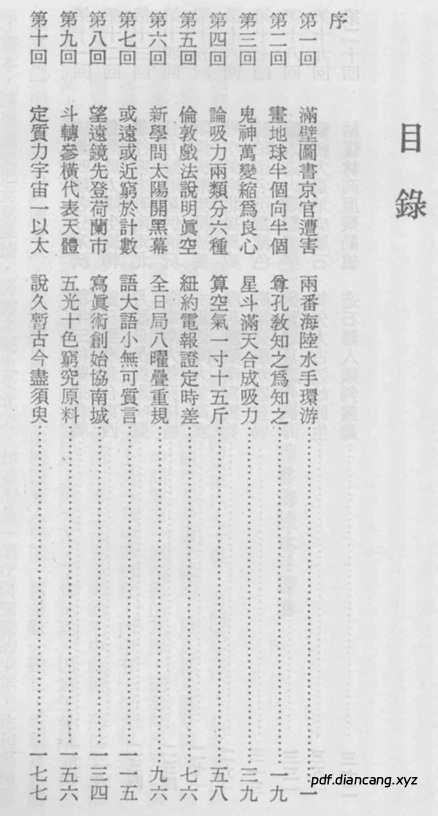 目錄
序
第一回 滿壁圖書京官遭害 兩番海陸水手環游……一
第二回 畫地球半個向半個 尊孔教知之爲知之……一九
第三回 鬼神萬變縮爲良心 星斗滿天合成吸力……三九
第四回 論吸力兩類分六種 算空氣一寸十五斤……五八
第五回 倫敦戲法說明眞空 紐約電報證定時差……七六
第六回 新學問太陽開黑幕 全日局八曜疊重規……九六
第七回 或遠或近窮於計數 語大語小無可質言……一一五
第八回 望遠鏡先登荷蘭市 寫眞術創始協南城……一三四
第九回 斗轉參橫代表天體 五光十色窮究原料……一五六
第十回 定質力宇宙一以太 說久暫古今盡須臾……一七七
pdf.diancang.xyz